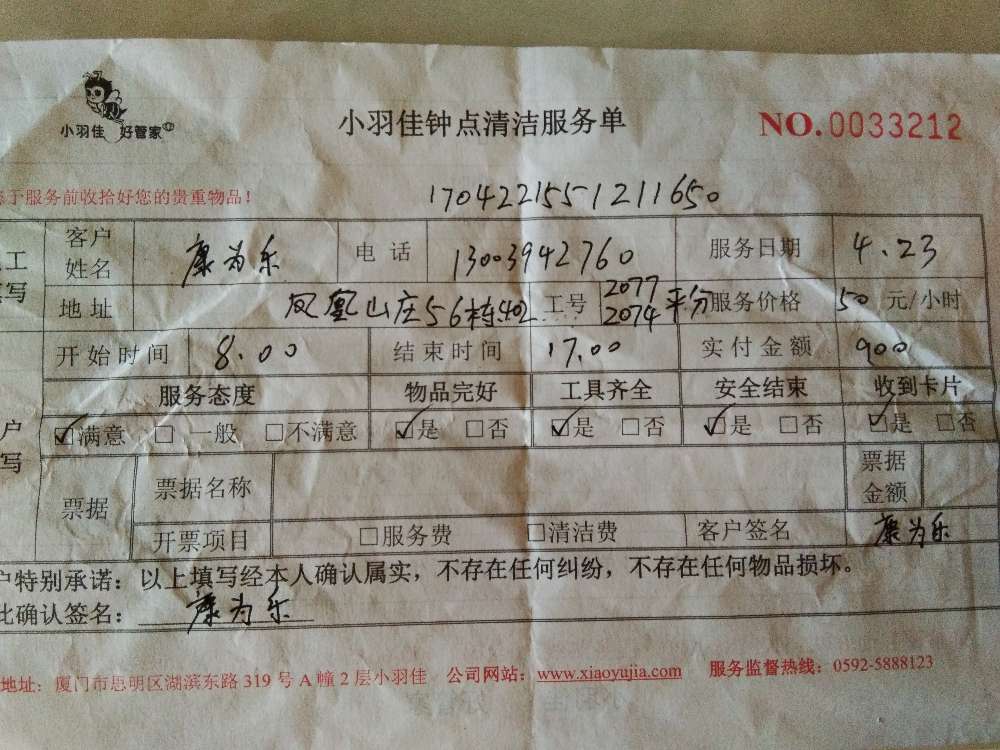 小羽佳 好管家
小羽佳钟点清洁服务单
NO.0033212
于服务前收拾好您的贵重物品!
1704221551211650
工
写
客户姓名 康为乐 电话 13003942760 服务日期 4.23
地址 凤凰山庄56栋402 工号 2077 2074 平分 服务价格 50 元/小时
开始时间 8.00 结束时间 17.00 实付金额 900
服务态度 物品完好 工具齐全 安全结束 收到卡片
户
写
☑满意 □一般 □不满意 ☑是 □否 ☑是 □否 ☑是 □否 ☑是 □否
票据 票据名称 票据金额
开票项目 □服务费 □清洁费 客户签名 康为乐
户特别承诺：以上填写经本人确认属实，不存在任何纠纷，不存在任何物品损坏。
此确认签名： 康为乐
地址：厦门市思明区湖滨东路 319 号 A 幢 2 层小羽佳 公司网站：www.xiaoyujia.com 服务监督热线：0592-5888123